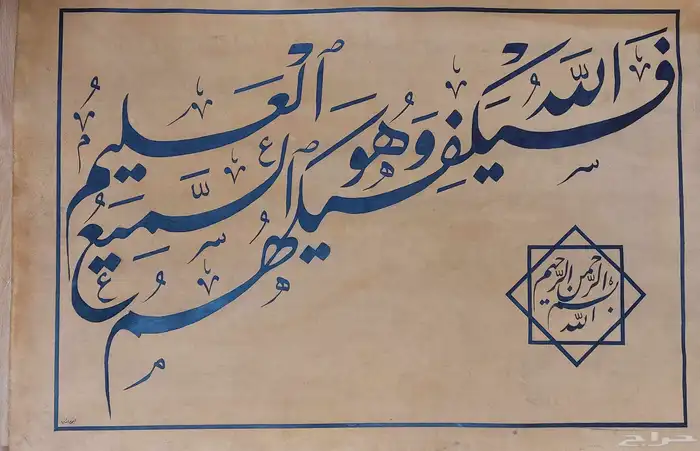 فسيكفيكهم الله وهو السميع العليم
بسم الله الرحمن الرحيم
حراج